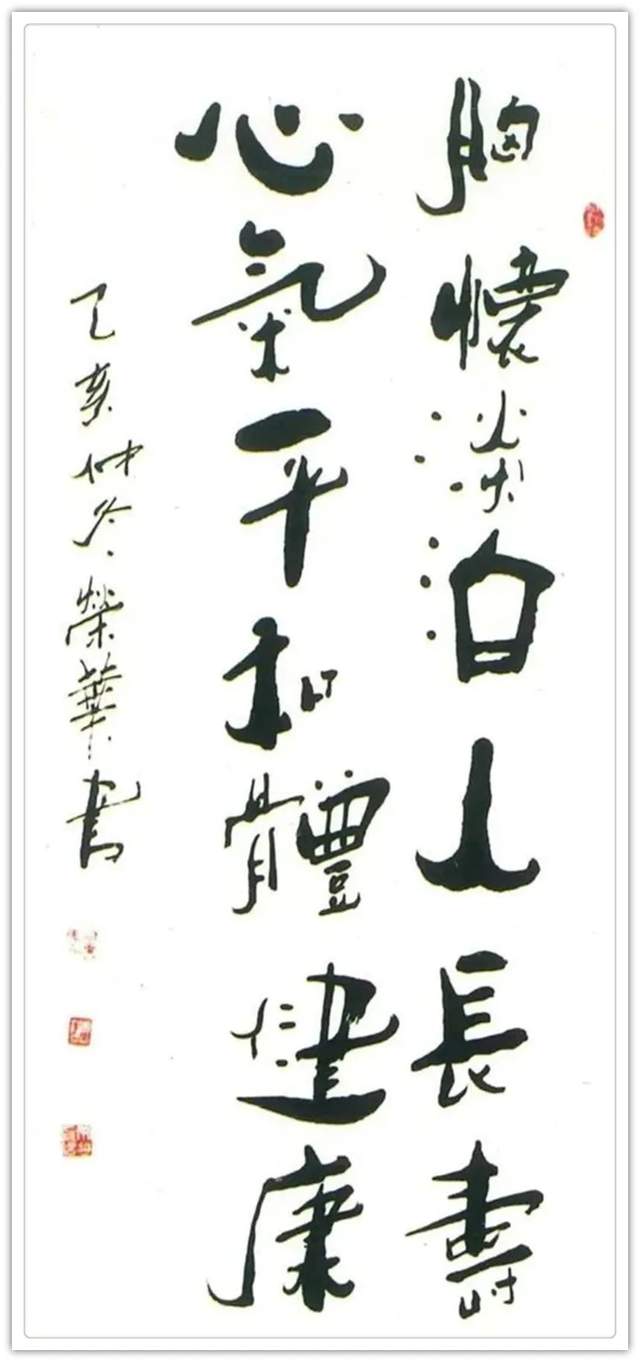 胸懷淡泊人長壽
心氣平和體健康
亥仲冬榮華書